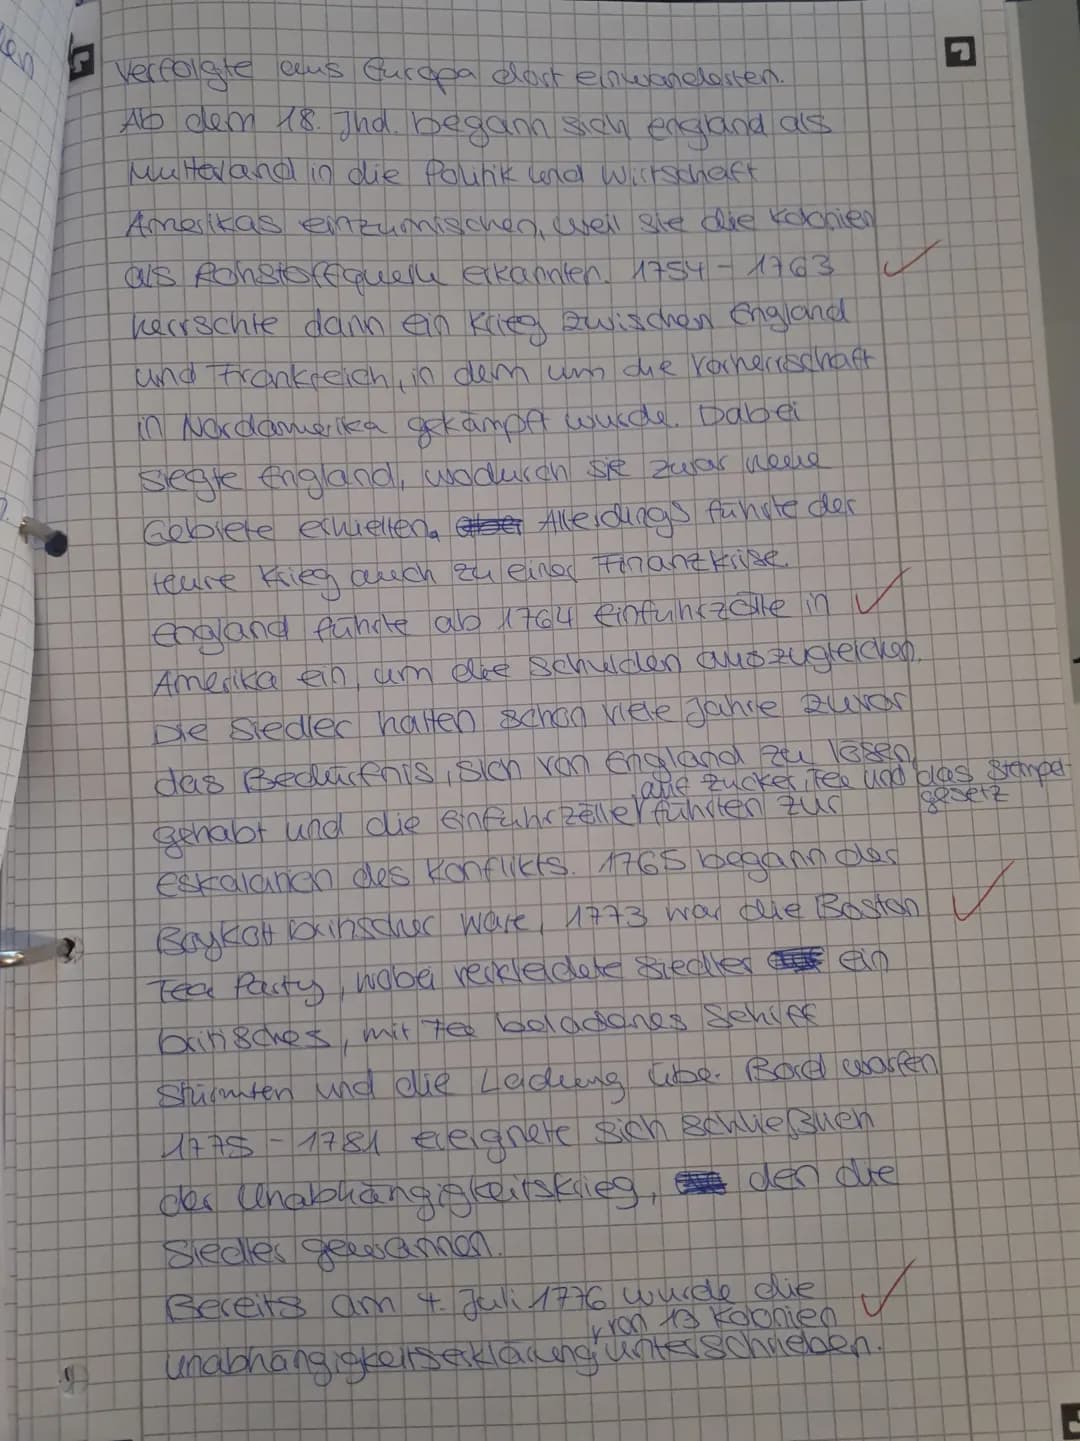 en
verfolgte aus Europa dort einwanderten.
Ab dem 18. Jhd. begann sich england als
Mutterland in die Politik und Wirtschaft
Amerikas einzumischen, weil sie die Kolonien
als Rohstoffquelle erkannten. 1754 - 1763
herrschte dann ein Krieg zwischen England
und Frankreich, in dem um die Vorherrschaft
in Nordamerika gekämpft wurde. Dabei
siegte England, wodurch sie zwar neue
Gebiete erhielten. Allerdings führte der
teure Krieg auch zu einer Finanzkrise.
england führte ab 1764 einfuhrzölle in
Amerika ein, um die Schulden auszugleichen.
Die Siedler hatten schon viele Jahre zuvor
das Bedürfnis, sich von England zu lösen,
gehabt und die einfuhrzölle auf Zucker, Tee und das Stempel-
gesetz führten zur
eskalation des Konflikts. 1765 begann der
Boykott britischer Ware, 1773 war die Boston
Tea Party, wobei verkleidete Siedler ein
britisches, mit Tee beladenes Schiff
stürmten und die Ladung über Bord warfen
1775 - 1781 ereignete sich schließlich
der Unabhängigkeitskrieg, den die
Siedler gewannen.
Bereits am 4. Juli 1776 wurde die
unabhängigkeitserklärung von 13 Kolonien unterschrieben.